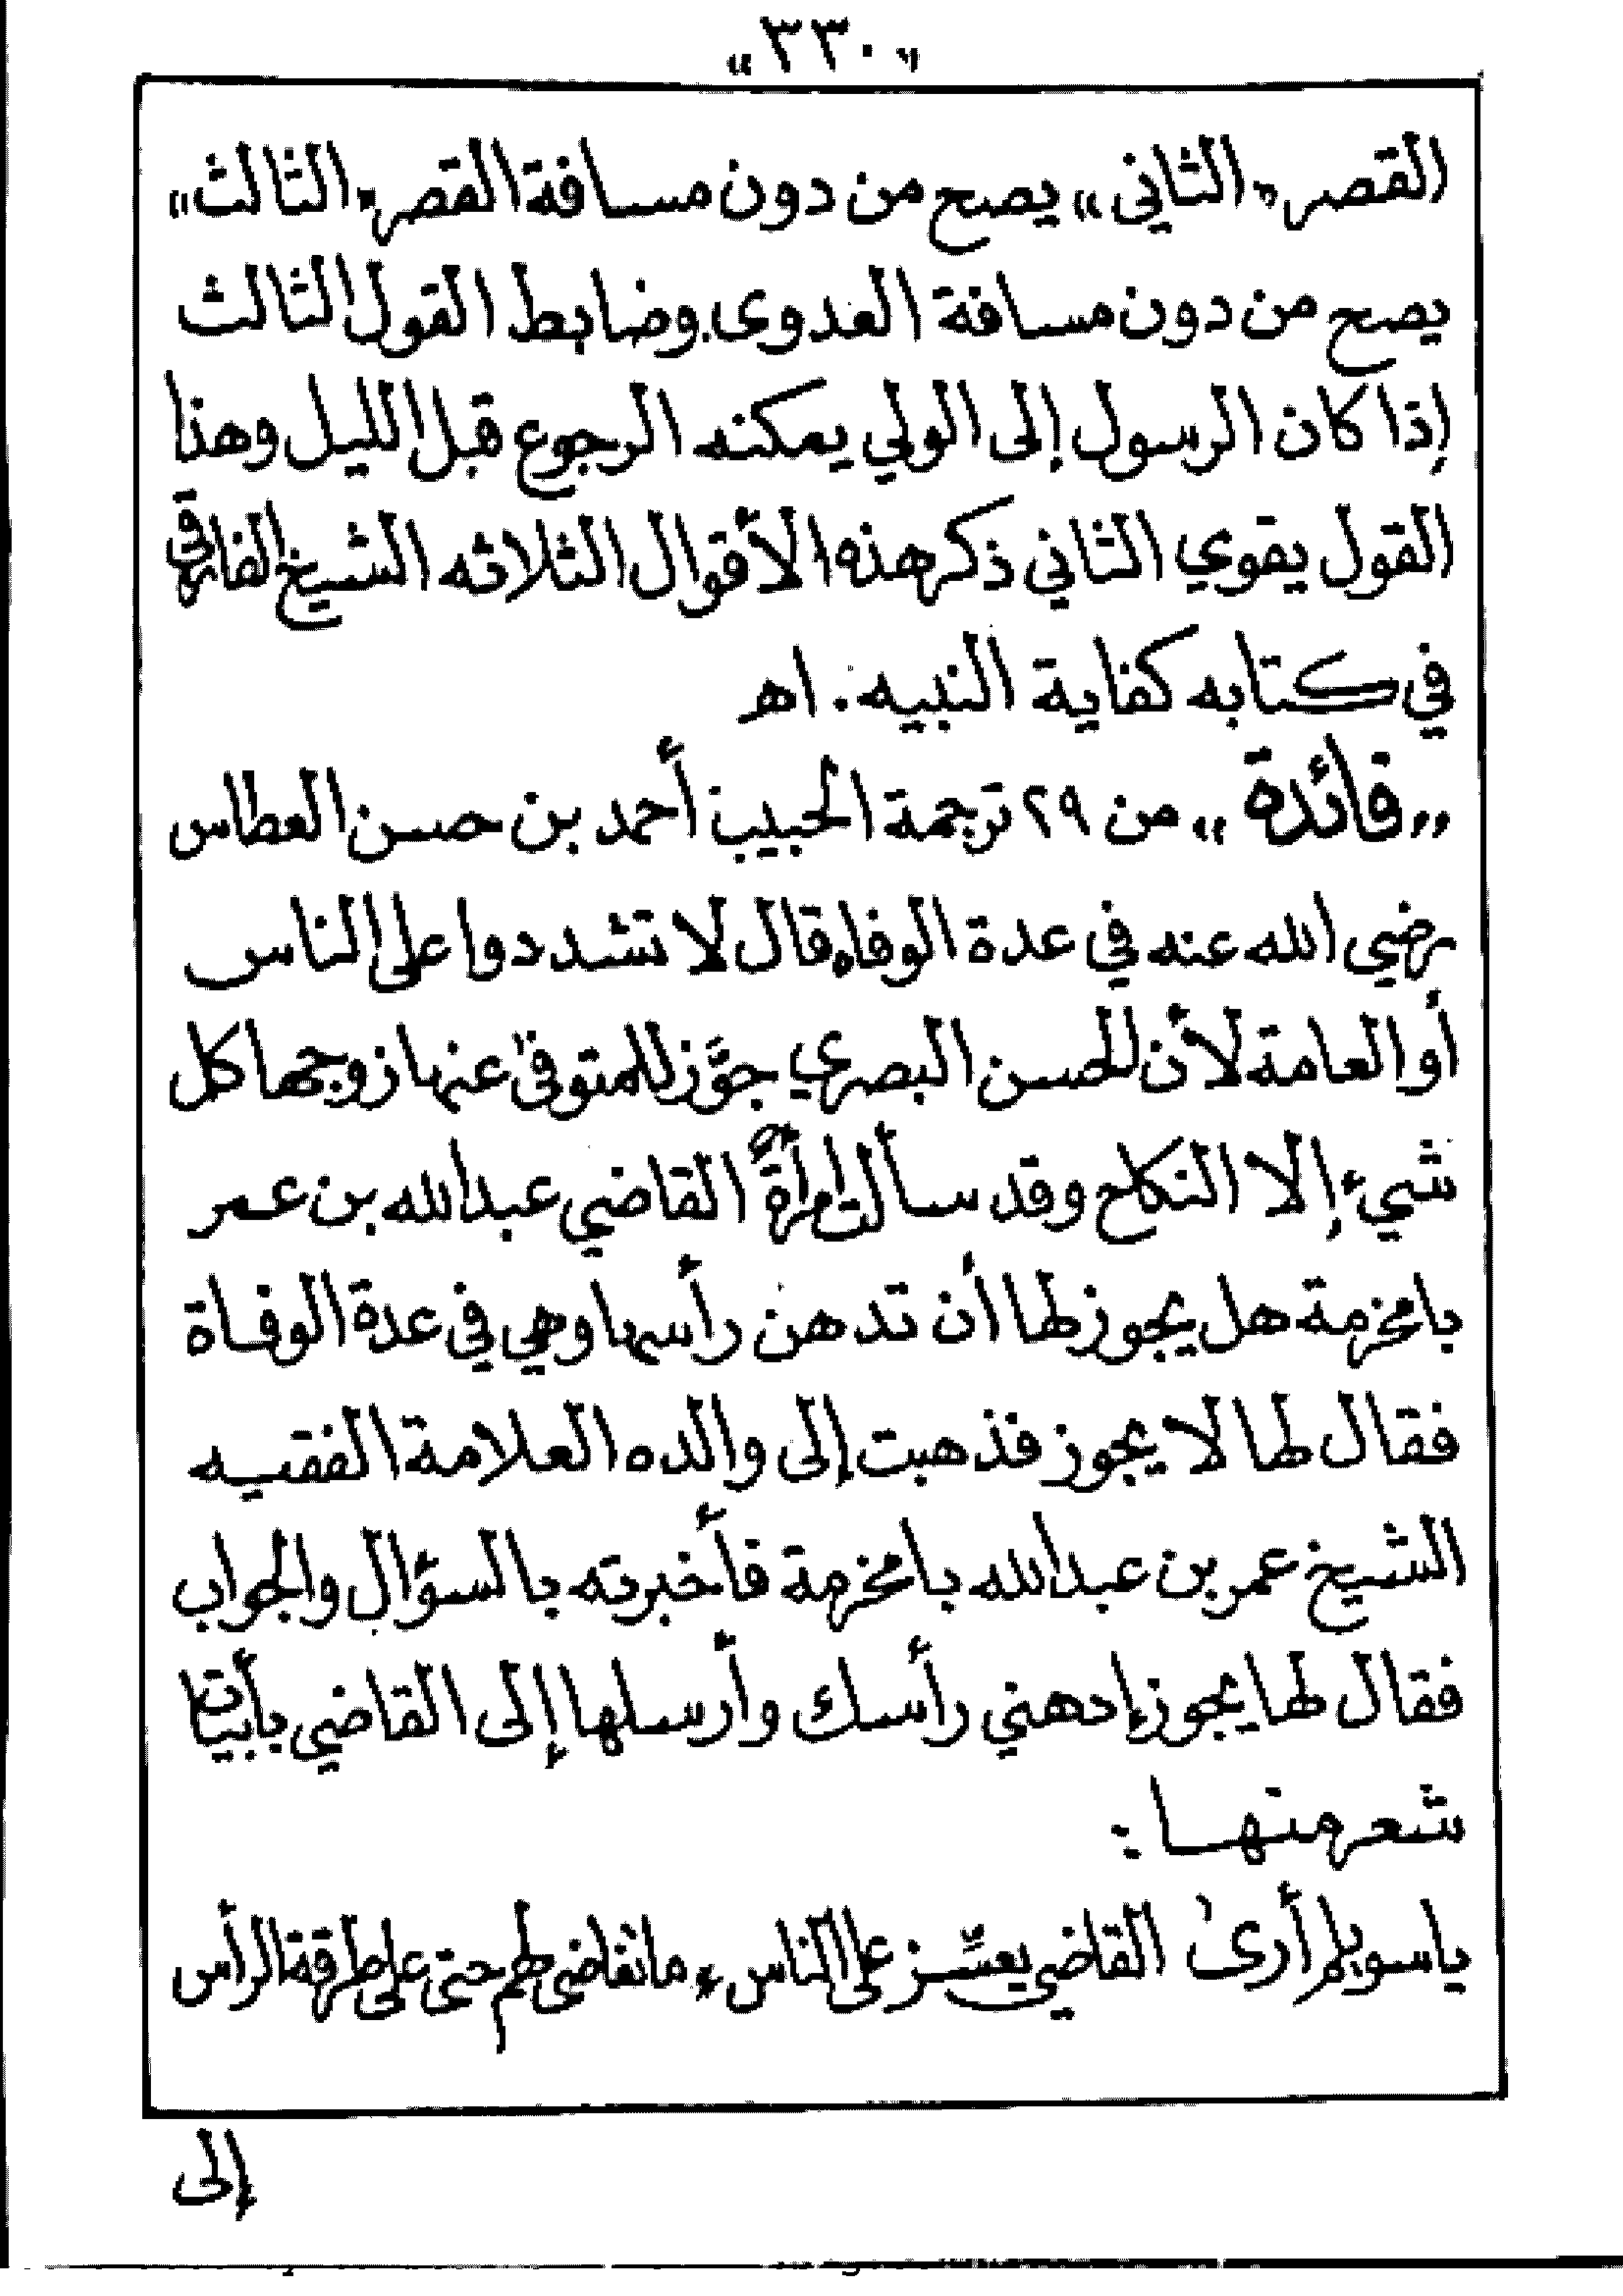 «٣٣٠»
القصر «الثاني» يصح من دون مسافة القصر «الثالث»
يصح من دون مسافة العدوى. وضابط القول الثالث
إذا كان الرسول إلى الولي يمكنه الرجوع قبل الليل وهذا
القول يقوي الثاني ذكر هذه الأقوال الثلاثه الشيخ الفارقي
في كتابه كفاية النبيه . اهـ
«فائدة» من ٢٩ ترجمة الحبيب أحمد بن حسن العطاس
رضي الله عنه في عدة الوفاه قال لا تشددوا على الناس
أو العامة لأن للحسن البصري جوَّز للمتوفىٰ عنها زوجها كل
شيء إلا النكاح وقد سألت امرأةٌ القاضي عبدالله بن عمر
بامخرمة هل يجوز لها أن تدهن رأسها وهي في عدة الوفاة
فقال لها لا يجوز فذهبت إلى والده العلامة الفقيه
الشيخ عمر بن عبدالله بامخرمة فأخبرته بالسؤال والجواب
فقال لها يجوز إدهني رأسك وأرسلها إلى القاضي بأبيات
شعر منها :
ياسويلم أرىٰ القاضي يعسِّز على الناس * ماتغاضى لهم حتى على طرقة الرأس
إلى